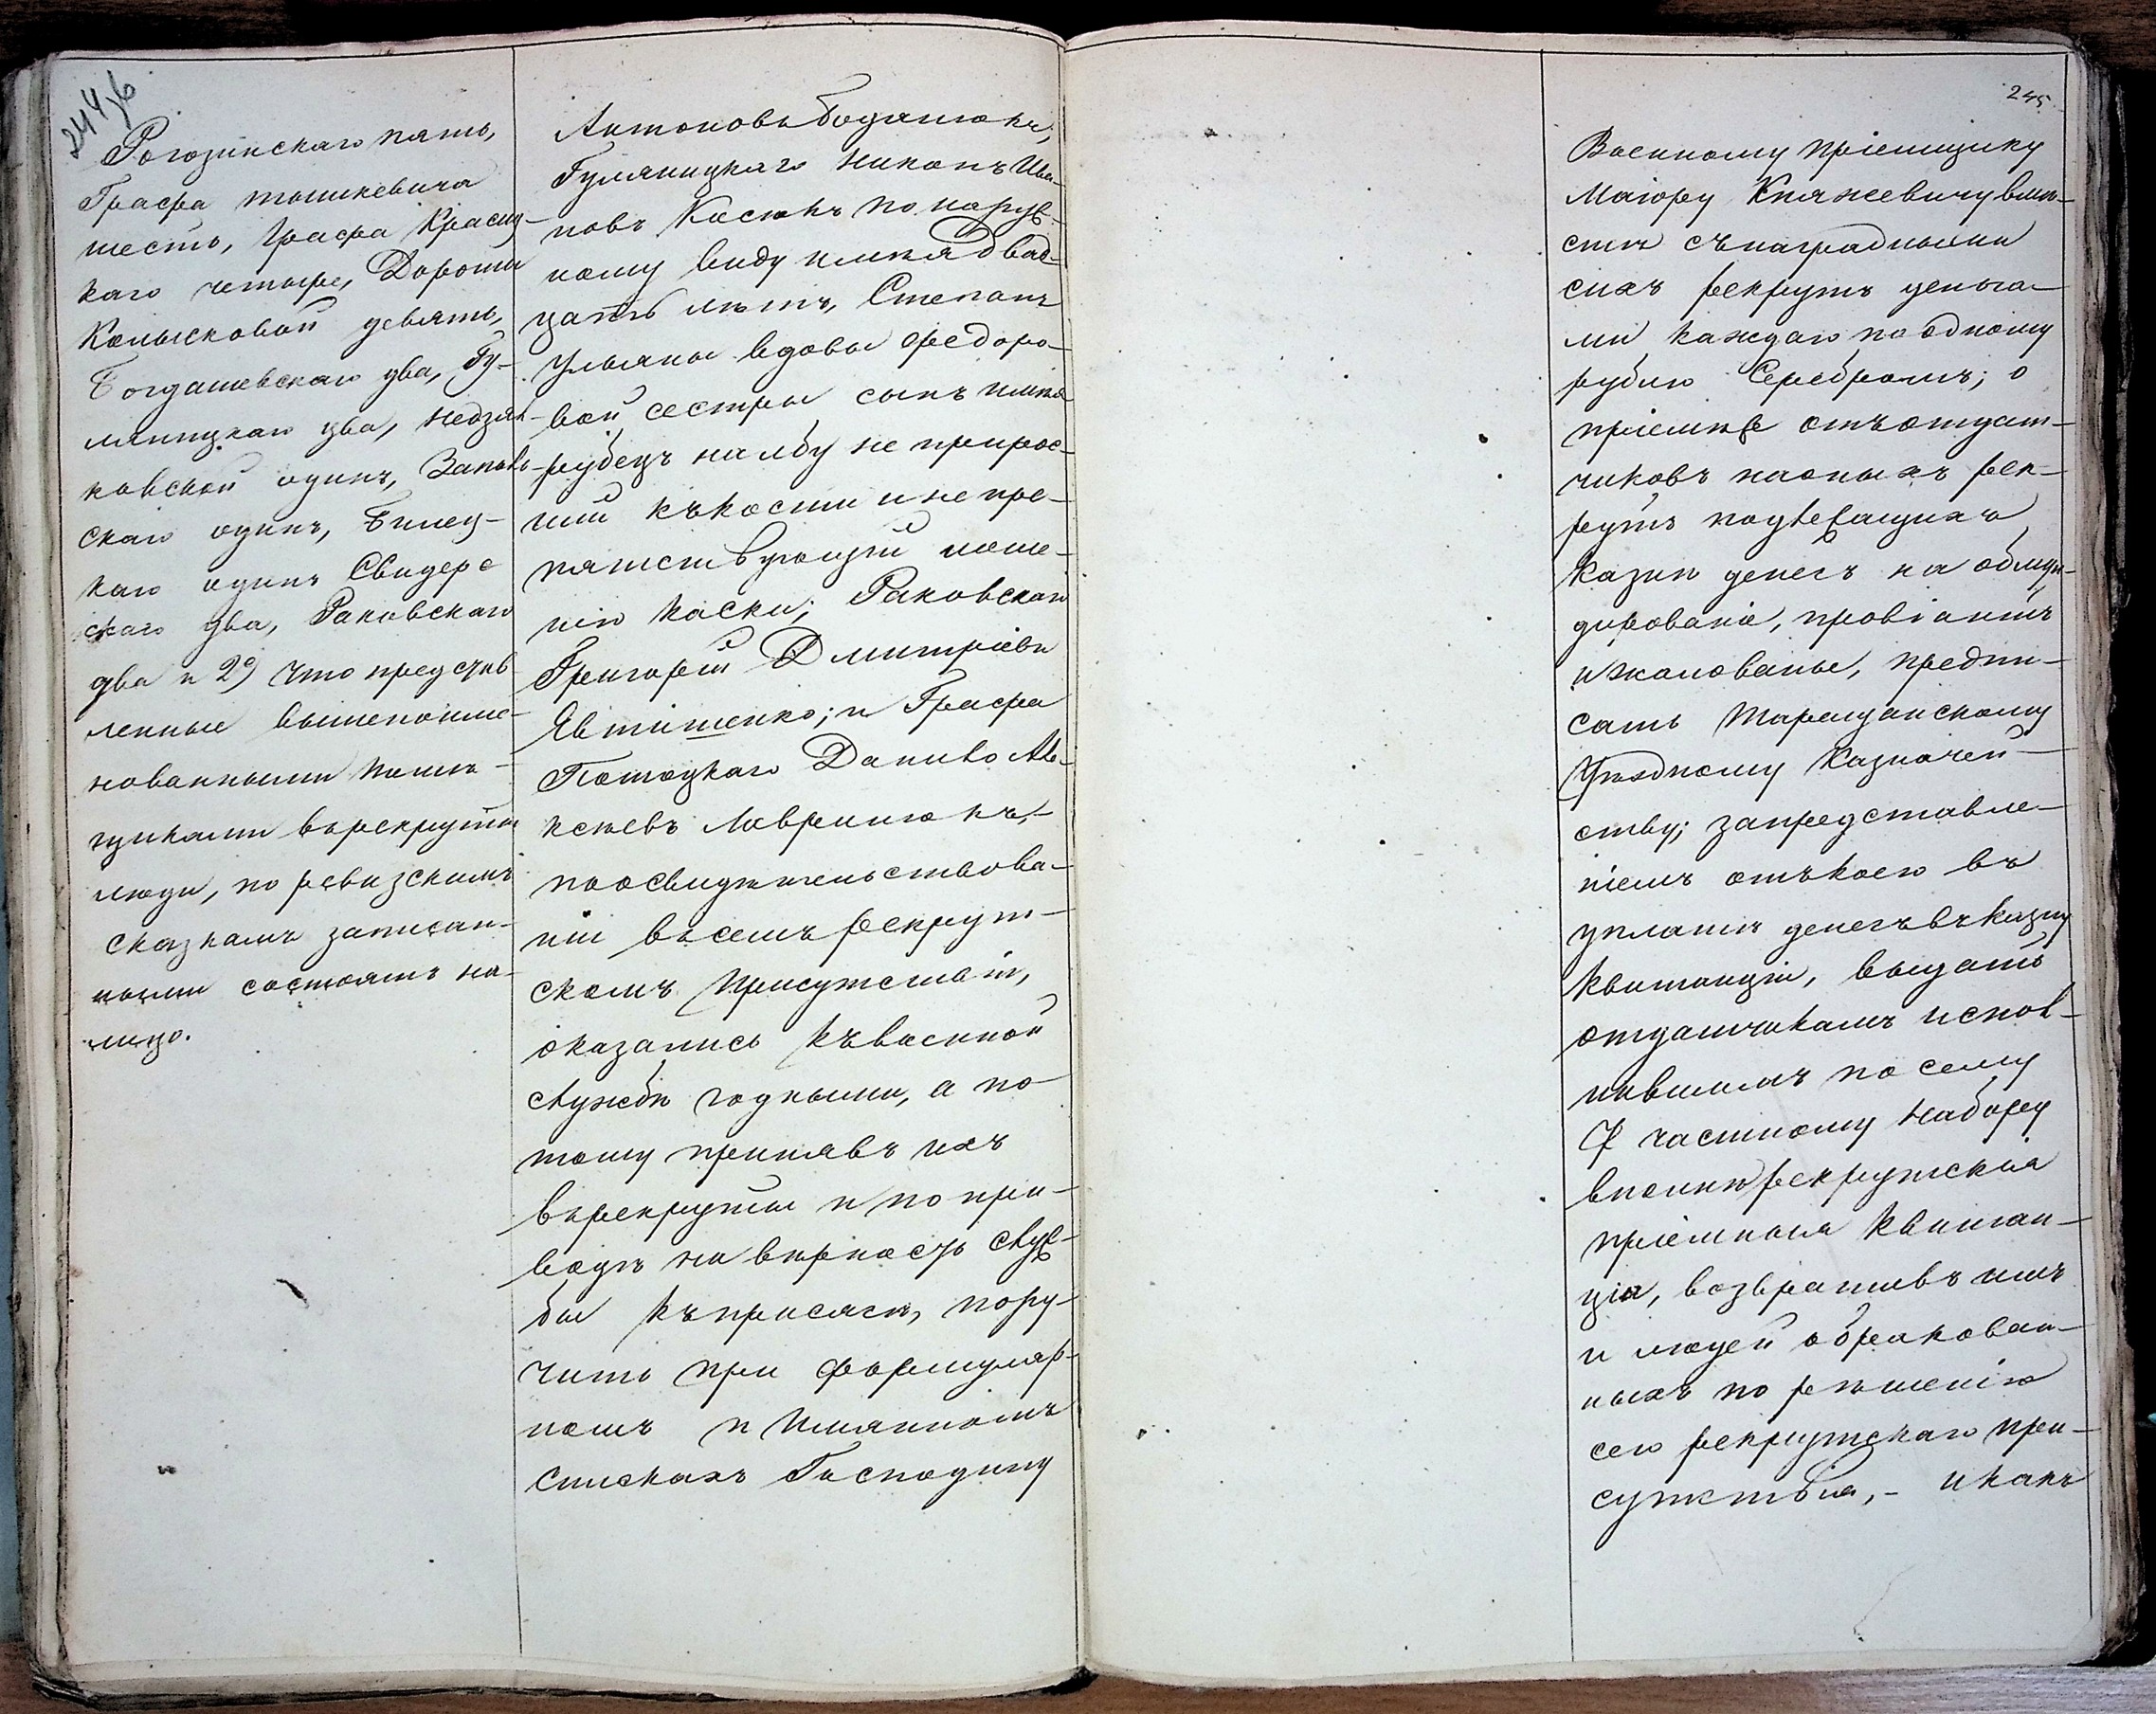 244 об
Рогозинскаго пять,
Графа тышкевича
шесть, Графа Красиц-
каго четыре, Дороти
Копысковой девять,
Богдашевскаго два, Гу-
ляницкаго два, Недзял-
ковской одинъ, Заполь-
скаго одинъ, Билец-
каго одинъ Свидерс
скаго два, Раковскаго
два и 2е) Что представ
ленные вышепоиме-
нованными помѣ-
щиками въ рекруты
люди, по ревизскимъ
сказкамъ записан-
ными состоятъ на-
лицо.
Антоновъ Боднюкъ;
Гуляницкаго Никонъ Ива-
новъ Костюкъ по наруж-
ному виду имѣя двад-
цать лѣтъ, Степанъ
Ульяны вдовы Федоро-
вой сестры сынъ имѣя
рубецъ на лбу не прирос-
шій къ кости и не пре-
пятствующій ноше-
нію каски; Раковскаго
Григорій Дмитріевъ
Явтишенко; и Графа
Потоцкаго Данило Але-
ксѣевъ Лавринюкъ, -
по освидѣтельствова-
ніи въ семъ рекрут-
скомъ присутствіи,
оказались къ военной
службѣ годными, а по
тому принявъ ихъ
въ рекруты и по при-
водѣ на вѣрность служ-
бы къ присягѣ, пору-
чить при формуляр-
номъ и Имянномъ
спискахъ Господину
245
Военному пріемщику
Маіору Княжевичу вмѣ-
стѣ съ наградными
сихъ рекрутъ деньга-
ми каждаго по одному
рублю Серебромъ; о
пріемѣ отъ отдат-
чиковъ на оныхъ рек-
рутъ подлежащихъ
Казнѣ денегъ на обмун-
дированіе, провіантъ
и жалованье, предпи-
сать Таращанскому
Уѣздному Казначей-
ству; за представле-
ніемъ отъ коего въ
уплатѣ денегъ въ казну
квитанціи, выдать
отдатчикамъ испол-
нившимъ по сему
Ꙗ частному набору
вполнѣ рекрутскія
пріемныя квитан-
ціи, возвративъ имъ
и людей обракован-
ныхъ по рѣшенію
сего рекрутскаго при-
сутствія, - и какъ